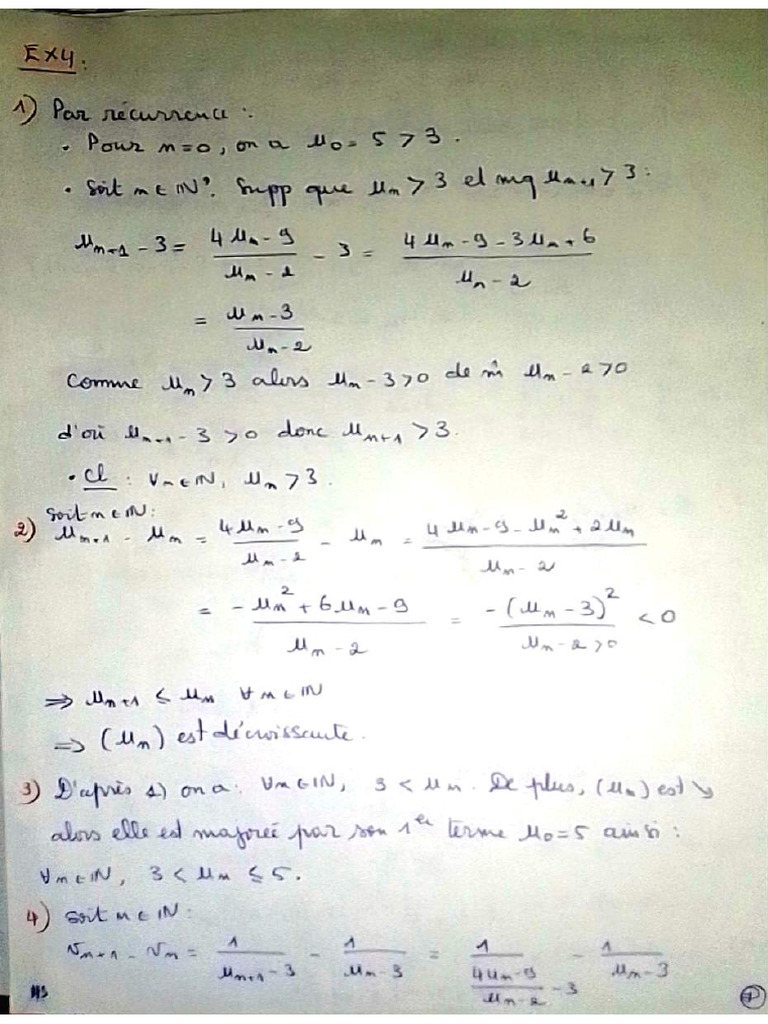 EX4:
1) Par récurrence :
• Pour n=0, on a u₀ = 5 > 3.
• Soit n ∈ ℕ. Supp que uₙ > 3 et mq uₙ₊₁ > 3 :
uₙ₊₁ - 3 = (4uₙ - 9)/(uₙ - 2) - 3 = (4uₙ - 9 - 3uₙ + 6)/(uₙ - 2)
= (uₙ - 3)/(uₙ - 2)
Comme uₙ > 3 alors uₙ - 3 > 0 de m̂ uₙ - 2 > 0
d'où uₙ₊₁ - 3 > 0 donc uₙ₊₁ > 3.
• Cl : ∀n ∈ ℕ, uₙ > 3.
2) Soit n ∈ ℕ :
uₙ₊₁ - uₙ = (4uₙ - 9)/(uₙ - 2) - uₙ = (4uₙ - 9 - uₙ² + 2uₙ)/(uₙ - 2)
= (-uₙ² + 6uₙ - 9)/(uₙ - 2) = (-(uₙ - 3)²)/(uₙ - 2 > 0) < 0
⇒ uₙ₊₁ ≤ uₙ ∀n ∈ ℕ
⇒ (uₙ) est décroissante.
3) D'après 1) on a : ∀n ∈ ℕ, 3 < uₙ. De plus, (uₙ) est ↘
alors elle est majorée par son 1er terme u₀ = 5 ainsi :
∀n ∈ ℕ, 3 < uₙ ≤ 5.
4) Soit n ∈ ℕ :
vₙ₊₁ - vₙ = 1/(uₙ₊₁ - 3) - 1/(uₙ - 3) = 1/((4uₙ - 9)/(uₙ - 2) - 3) - 1/(uₙ - 3)